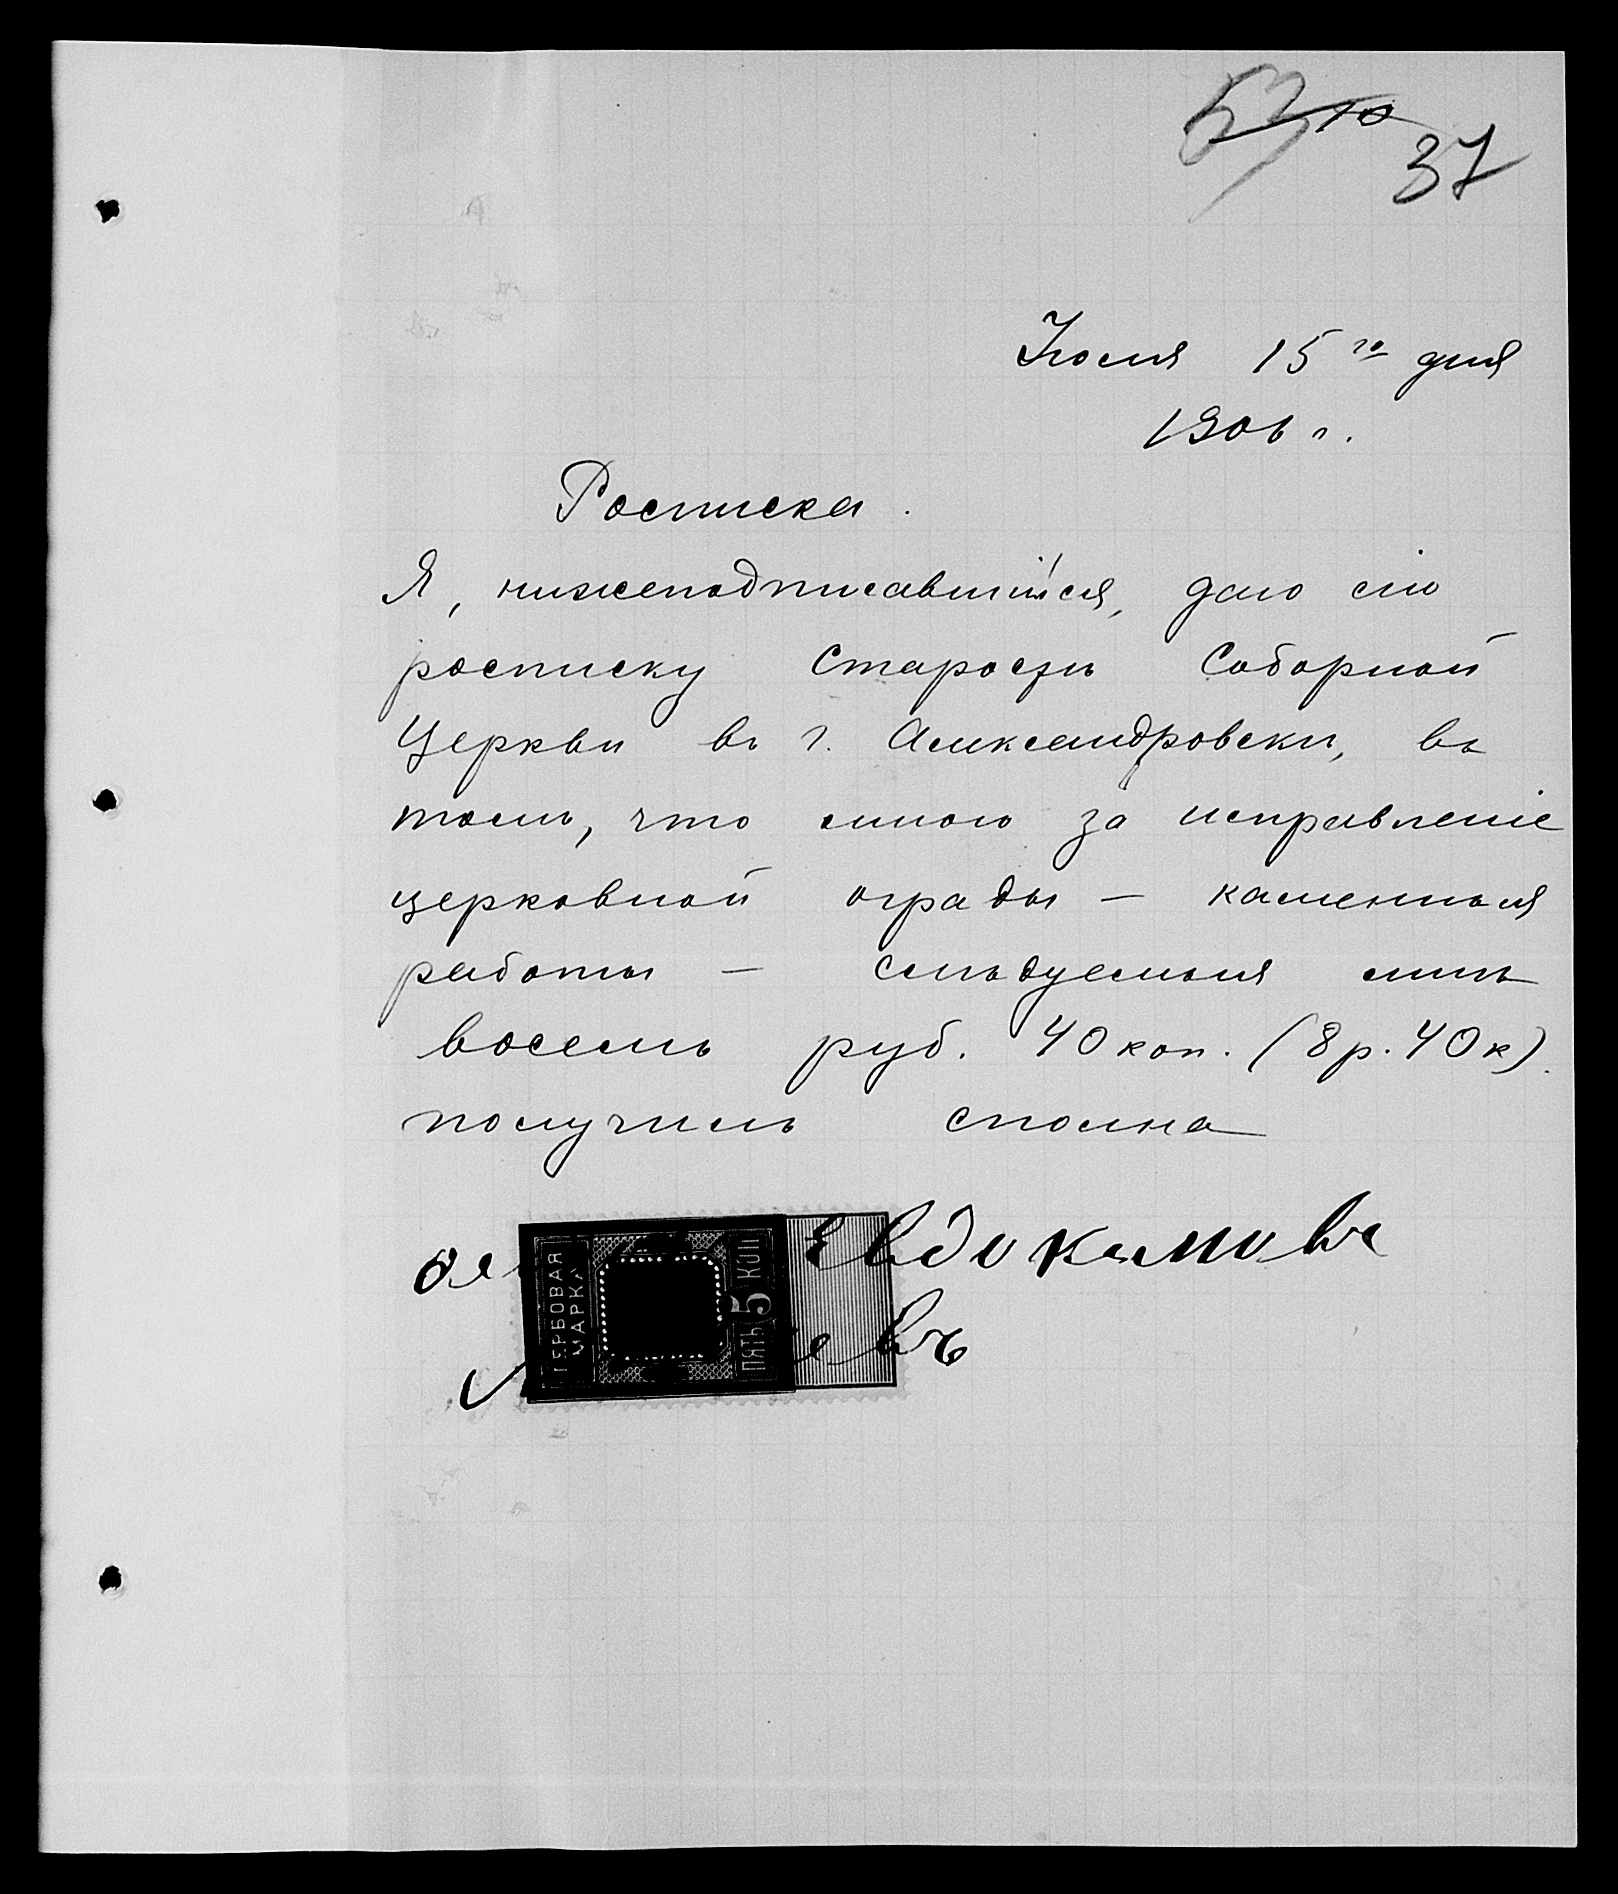 37
Июля 15го дня
1906 г.
Росписка.
Я, нижеподписавшійся, даю сію
росписку Старостѣ Соборной
Церкви въ г. Александровскѣ, въ
томъ, что мною за исправленіе
церковной ограды — каменныя
работы — слѣдуемыя мнѣ
восемь руб. 40 коп. (8 р. 40 к).
получилъ сполна
Евдокимовъ
ГЕРБОВАЯ
МАРКА
ПЯТЬ 5 КОП